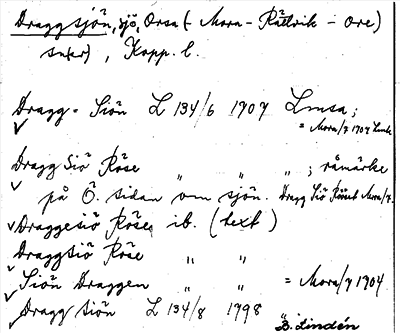 Draggsjön, sjö, Orsa (- Mora - Rättvik - Ore)
sn(er), Kopp. l.
Dragg-Siön L 134/6 1707 Lmsa;
= Mora/7 1704 Lmsa
Dragg Siö Röse " " "; råmärke
på Ö. sidan om sjön. Dragg Siö Röset Mora/7.
Draggesiö Röse ib. (text)
Draggsiö Röse " "
Siön Draggen " " = Mora/7 1704
Dragg siön L 134/8 1798
B. Lindén